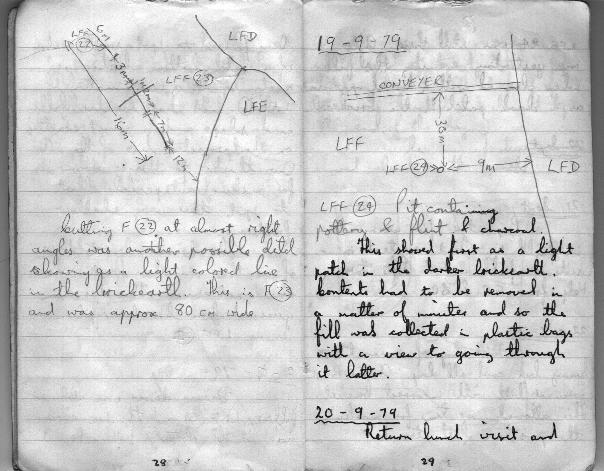 LFF (22)
6m
3m
7m
16m
12m
LFD
LFF (23)
LFE
Cutting F (22) at almost right
angles was another possible ditch
showing as a light colored line
in the brickearth. This is F (23)
and was approx 80 cm wide.
28
19-9-79
CONVEYER
30m
LFF
LFF (24)
9m
LFD
LFF (24) Pit containing
pottery & flint & charcoal.
This showed first as a light
patch in the darker brickearth.
Contents had to be removed in
a matter of minutes and so the
fill was collected in plastic bags
with a view to going through
it latter.
20-9-79
Return lunch visit and
29